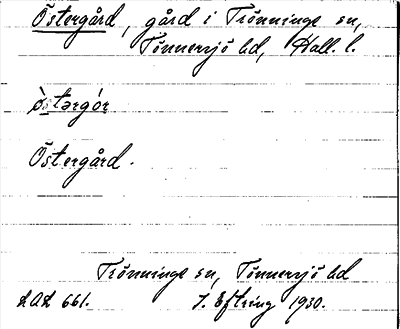 Östergård, gård i Trönninge sn,
Tönnersjö hd, Hall. l.
östərgór
Östergård.
Trönninge sn, Tönnersjö hd
LAL 661. J. Eftring 1930.